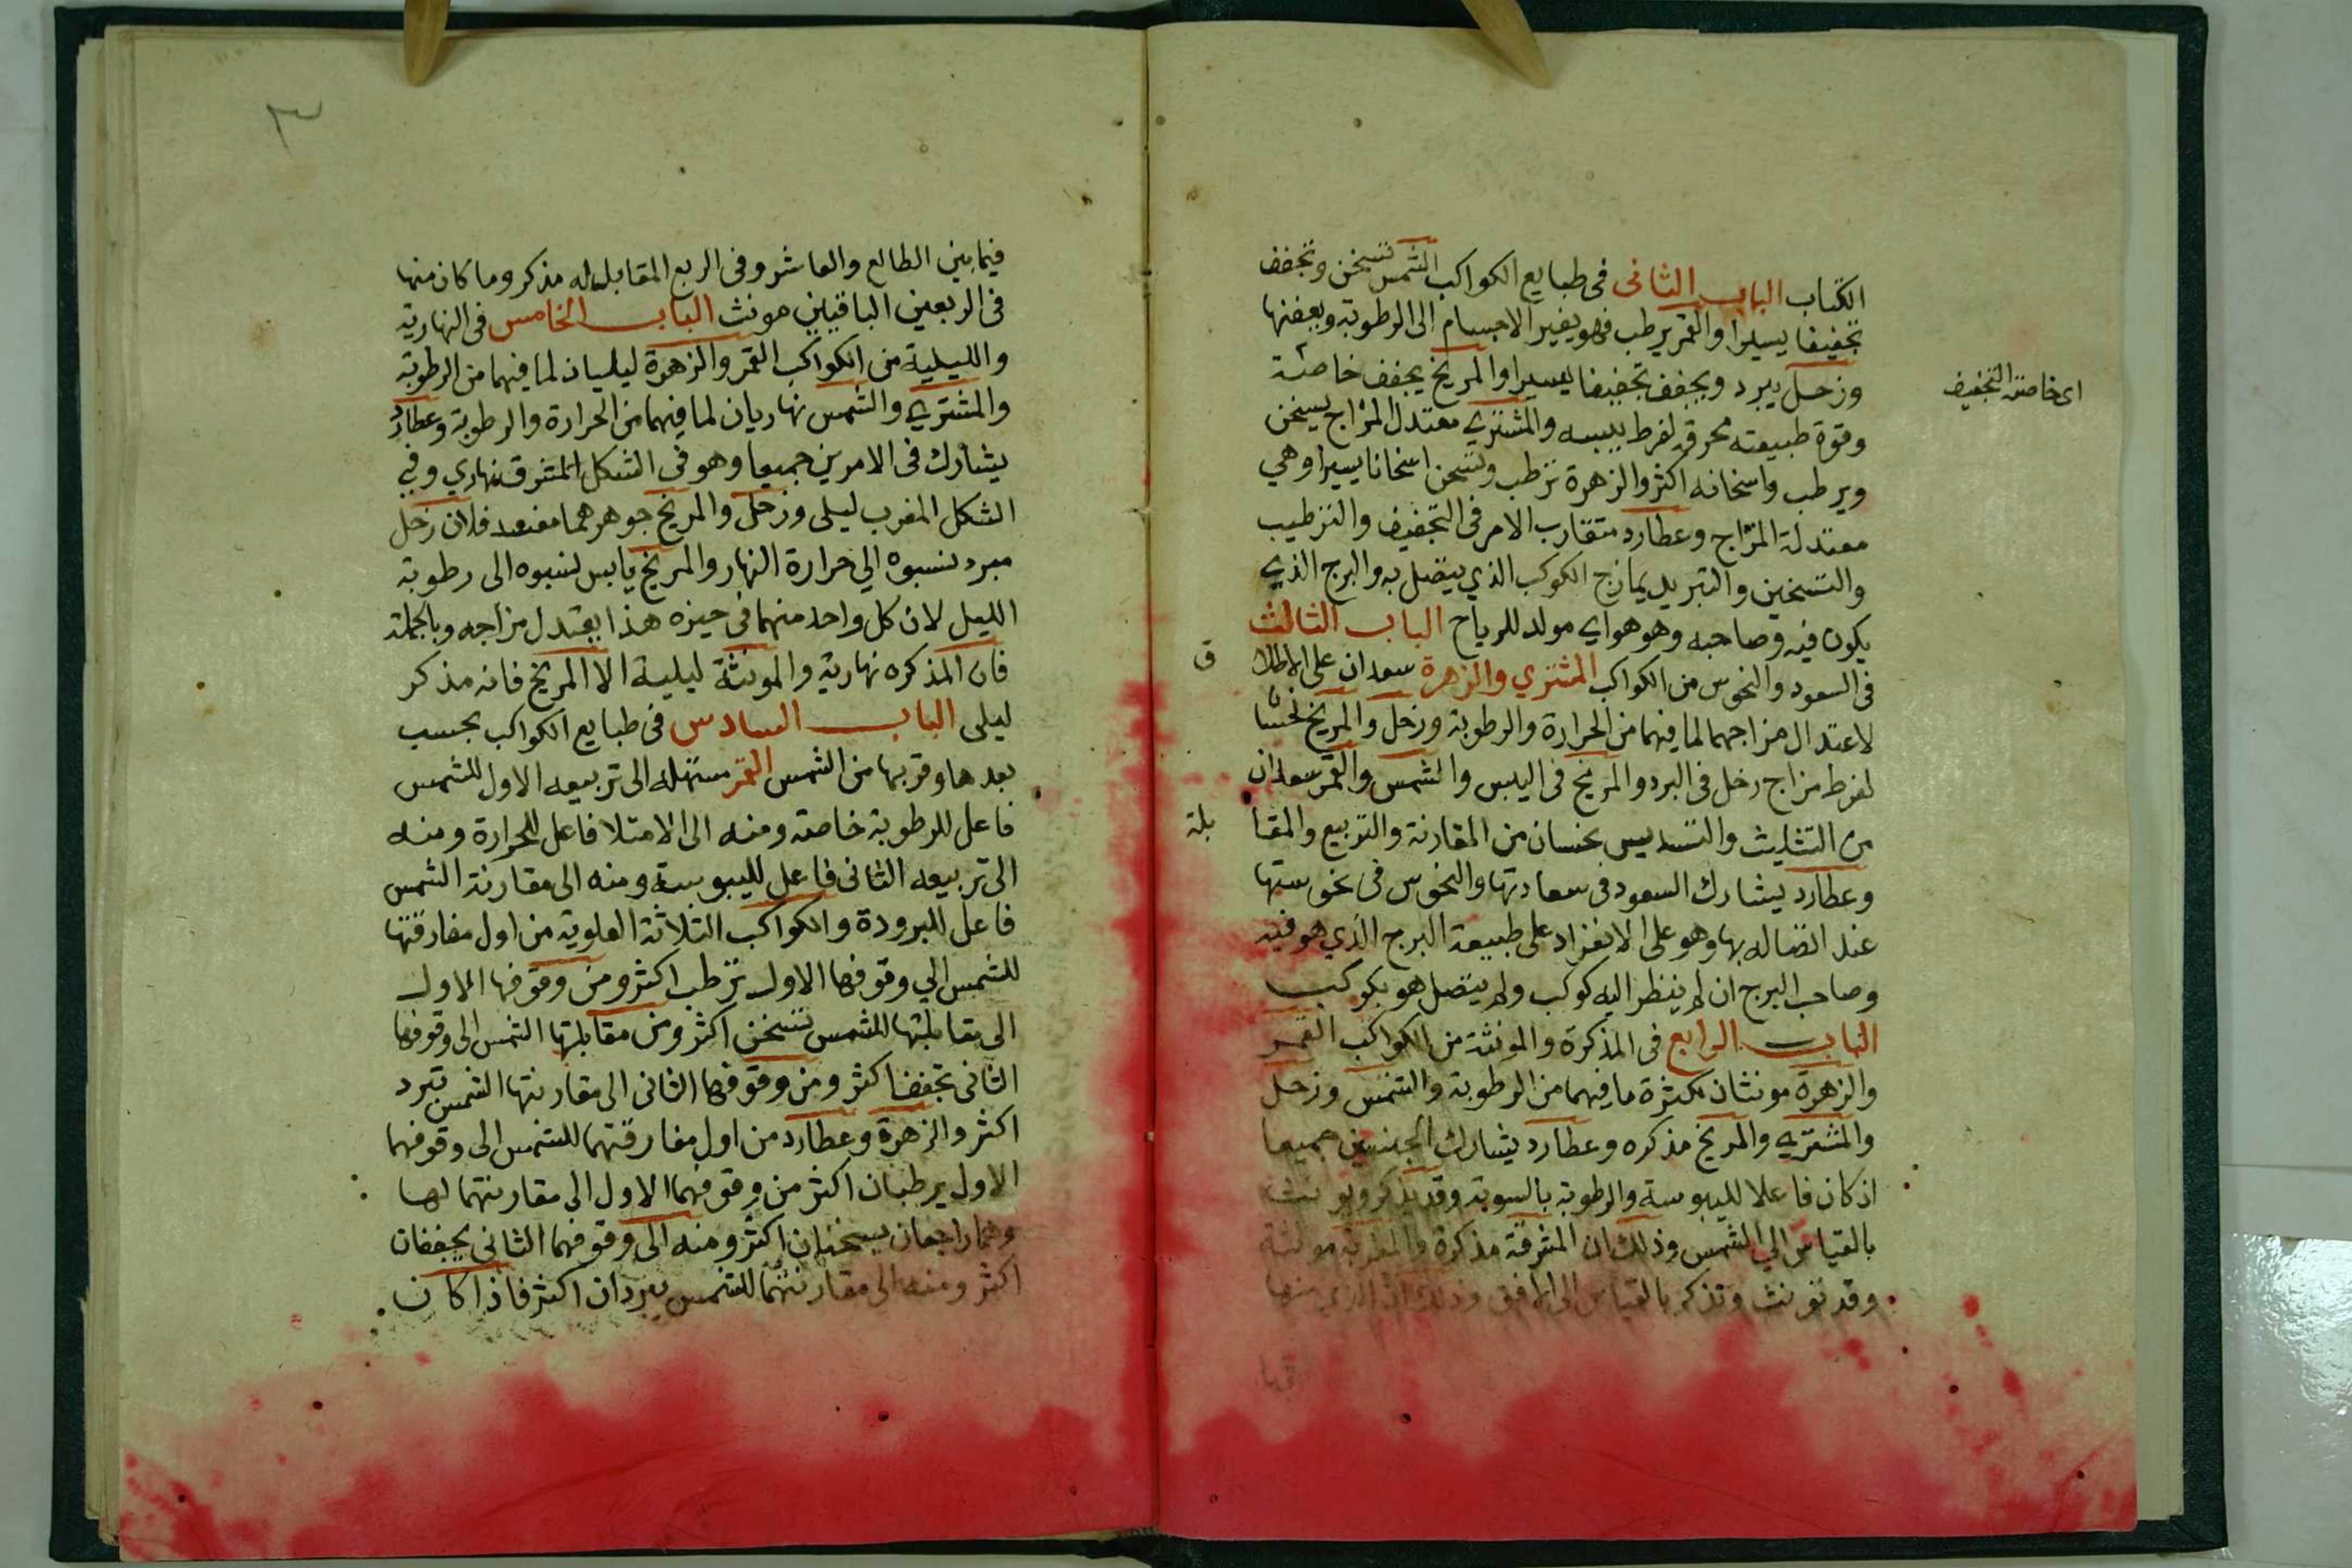 الكتاب الباب الثانى فى طبايع الكواكب الشمس تسخن وتجفف
تجفيفا يسيرا والقمر يرطب فهو يغير الاجسام الى الرطوبة ويعفنها
وزحل يبرد ويجفف تجفيفا يسيرا والمريخ يجفف خاصة
اى خاصته التجفيف
وقوة طبيعته محرقه لفرط يبسه والمشتري معتدل المزاج يسخن
ويرطب واسخانه اكثر والزهرة ترطب وتسخن اسخانا يسيرا وهي
معتدلة المزاج وعطارد متقارب الامر فى التجفيف والترطيب
والتسخين والتبريد يمازج الكوكب الذي يتصل به والبرج الذي
يكون فيه وصاحبه وهو هواي مولد للرياح الباب الثالث
فى السعود والنحوس من الكواكب المشتري والزهرة سعدان على الاطلا
ق
لاعتدال مزاجهما لما فيهما من الحرارة والرطوبة وزحل والمريخ نحسا
لفرط مزاج زحل فى البرد والمريخ فى اليبس والشمس والقمر سعدان
من التثليث والتسديس نحسان من المقارنة والتربيع والمقا
بلة
وعطارد يشارك السعود فى سعادتها والنحوس فى نحوستها
عند اتصاله بها وهو على الانفراد على طبيعة البرج الذي هو فيه
وصاحب البرج ان لم ينظر اليه كوكب ولم يتصل هو بكوكب
الباب الرابع فى المذكرة والمونثة من الكواكب القمر
والزهرة مونثان لكثرة ما فيهما من الرطوبة والشمس وزحل
والمشتري والمريخ مذكره وعطارد يشارك الجنسين جميعا
اذ كان فاعلا لليبوسة والرطوبة بالسوية وقد يذكر ويونث
بالقياس الي الشمس وذلك ان المشرقة مذكرة والمغربة مونثة
وقد تونث وتذكر بالقياس الى الافق وذلك ان الذي منها
٣
فيما بين الطالع والعاشر وفى الربع المقابل له مذكر وما كان منها
فى الربعين الباقيين مونث الباب الخامس فى النهارية
والليلية من الكواكب القمر والزهرة ليليان لما فيهما من الرطوبة
والمشتري والشمس نهاريان لما فيهما من الحرارة والرطوبة وعطارد
يشارك فى الامرين جميعا وهو فى الشكل المشرق نهاري وفي
الشكل المغرب ليلى وزحل والمريخ جوهرهما مفسد فلان زحل
مبرد نسبوه الي حرارة النهار والمريخ يابس نسبوه الى رطوبة
الليل لان كل واحد منهما فى حيزه هذا يعتدل مزاجه وبالجملة
فان المذكره نهارية والمونثة ليلية الا المريخ فانه مذكر
ليلى الباب السادس فى طبايع الكواكب بحسب
بعدها وقربها من الشمس القمر مستهله الى تربيعه الاول للشمس
فاعل للرطوبة خاصة ومنه الى الامتلا فاعل للحرارة ومنه
الى تربيعه الثانى فاعل لليبوسة ومنه الى مقارنة الشمس
فاعل للبرودة والكواكب الثلاثة العلوية من اول مفارقتها
للشمس الي وقوفها الاول ترطب اكثر ومن وقوفها الاول
الى مقابلتها للشمس تسخن اكثر ومن مقابلتها الشمس الى وقوفها
الثانى تجفف اكثر ومن وقوفها الثانى الى مقارنتها الشمس تبرد
اكثر والزهرة وعطارد من اول مفارقتهما للشمس الى وقوفهما
الاول يرطبان اكثر من وقوفهما الاول الى مقارنتهما لها
وهما راجعان يسخنان اكثر ومنه الى وقوفهما الثانى يجففان
اكثر ومنه الى مقارنتهما للشمس يبردان اكثر فاذا كان